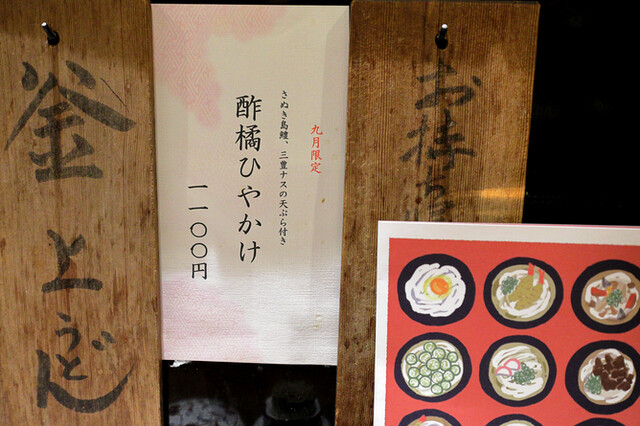 お持ち
九月限定
さぬき島鱧、三豊ナスの天ぷら付き
酢橘ひやかけ
一一〇〇円
釜上うどん